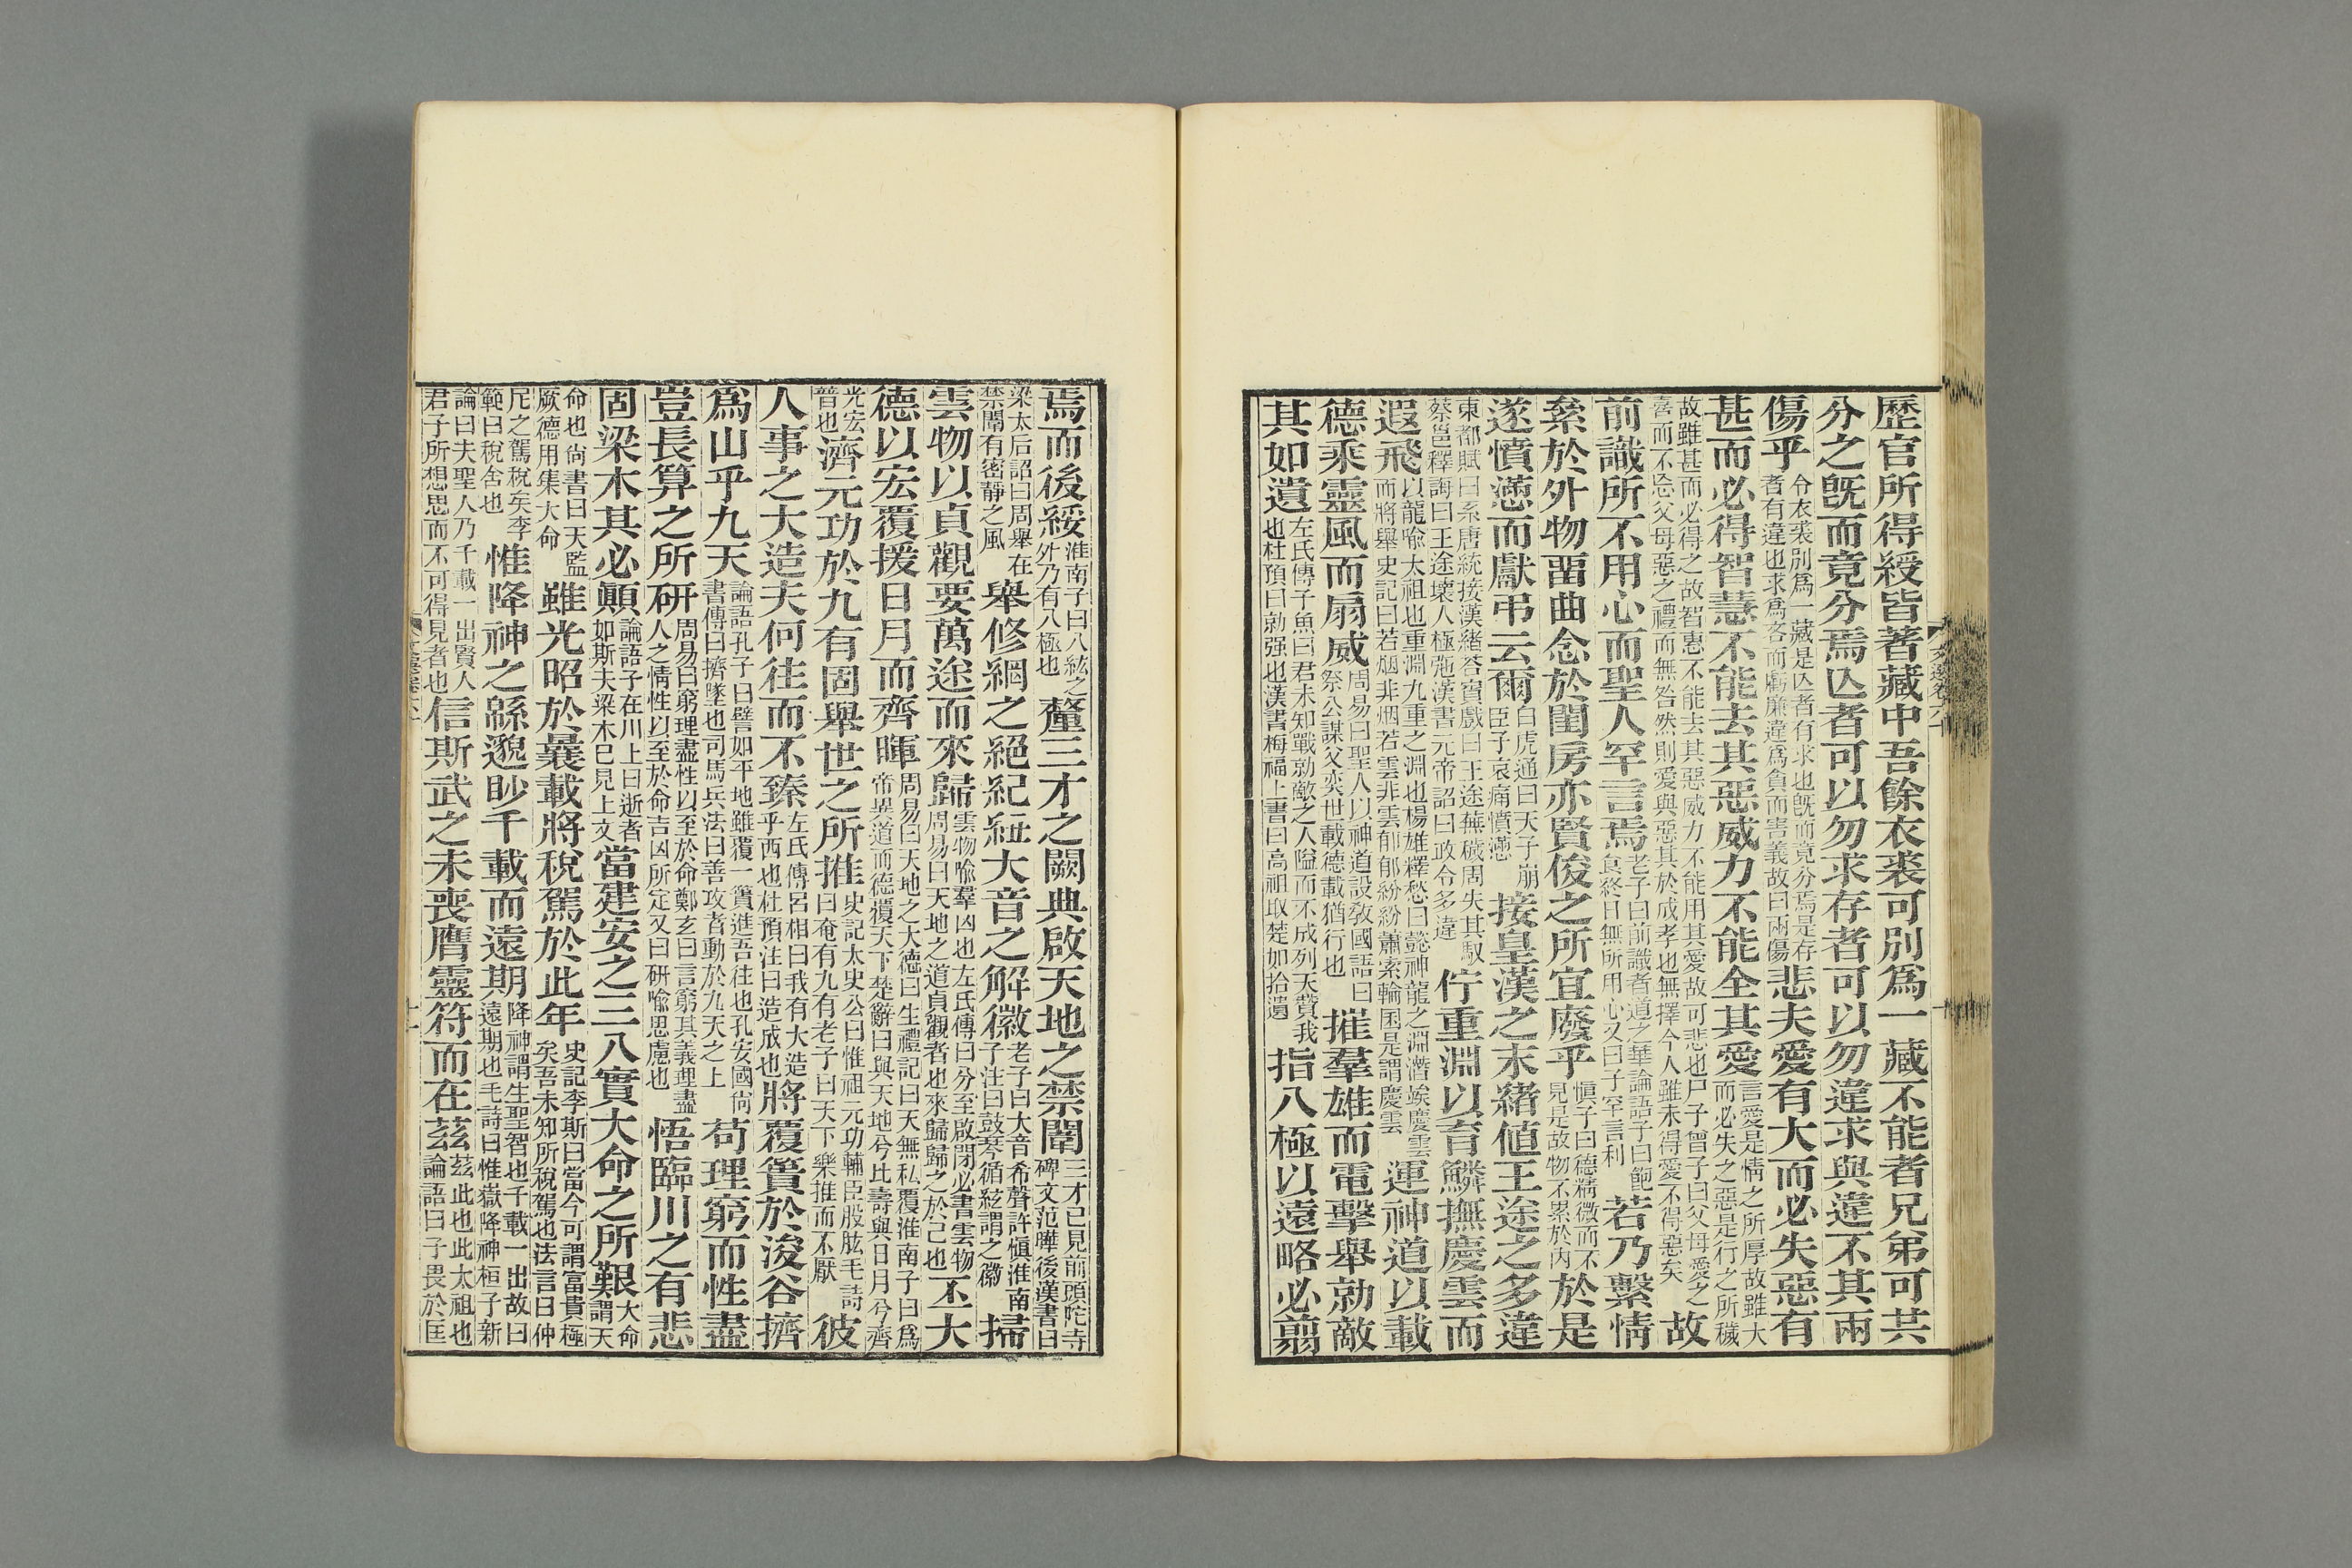 歷官所得綬皆著藏中吾餘衣裘可別爲一藏不能者兄弟可共
分之旣而竟分焉亾者可以勿求存者可以勿違求與違不其兩
傷乎令衣裘別爲一藏是亾者有求也旣而竟分焉是存者有違也求爲吝而虧廉違爲貪而害義故曰兩傷悲夫愛有大而必失惡有
甚而必得智慧不能去其惡威力不能全其愛言愛是情之所厚故雖大而必失之惡是行之所穢
故雖甚而必得之故智惠不能去其惡威力不能用其愛故可悲也尸子曾子曰父母愛之喜而不忘父母惡之禮而無咎然則愛與惡其於成孝也無擇今人雖未得愛不得惡矣故
前識所不用心而聖人罕言焉老子曰前識者道之華論語子曰飽食終日無所用心又曰子罕言利若乃繫情
絫於外物畱曲念於閨房亦賢俊之所宜廢乎愼子曰德精微而不見是故物不累於內於是
遂憤懣而獻弔云爾白虎通曰天子崩臣子哀痛憤懣接皇漢之末緖値王途之多違
東都賦曰系唐統接漢緒荅賓戲曰王途蕪穢周失其馭蔡邕釋誨曰王途壞人極弛漢書元帝詔曰政令多違佇重淵以育鱗撫慶雲而
遐飛以龍喩太祖也重淵九重之淵也楊雄釋愁曰懿神龍之淵潛竢慶雲而將舉史記曰若烟非烟若雲非雲郁郁紛紛蕭索輪囷是謂慶雲運神道以載
德乘靈風而扇威周易曰聖人以神道設敎國語曰祭公謀父奕世載德載猶行也摧羣雄而電擊舉勍敵
其如遺左氏傳子魚曰君未知戰勍敵之人隘而不成列天贊我也杜預曰勍强也漢書梅福上書曰高祖取楚如拾遺指八極以遠略必翦
焉而後綏淮南子曰八紘之外乃有八極也釐三才之闕典啟天地之禁闈三才已見前頭陀寺碑文范曄後漢書曰
梁太后詔曰周舉在禁闈有密靜之風舉修網之絕紀紐大音之解徽老子曰大音希聲許愼淮南子注曰鼓琴循絃謂之徽掃
雲物以貞觀要萬途而來歸雲物喩羣凶也左氏傳曰分至啟閉必書雲物周易曰天地之道貞觀者也來歸歸之於己也丕大
德以宏覆援日月而齊暉周易曰天地之大德曰生禮記曰天無私覆淮南子曰爲帝異道而德覆天下楚辭曰與天地兮比壽與日月兮齊
光宏普也濟元功於九有固舉世之所推史記太史公曰惟祖元功輔臣股肱毛詩曰奄有九有老子曰天下樂推而不厭彼
人事之大造夫何往而不臻左氏傳呂相曰我有大造乎西也杜預注曰造成也將覆簣於浚谷擠
爲山乎九天論語孔子曰譬如平地雖覆一簣進吾往也孔安國尙書傳曰擠墜也司馬兵法曰善攻者動於九天之上苟理窮而性盡
豈長算之所硏周易曰窮理盡性以至於命鄭玄曰言窮其義理盡人之情性以至於命吉凶所定又曰硏喩思慮也悟臨川之有悲
固梁木其必顚論語子在川上曰逝者如斯夫梁木已見上文當建安之三八實大命之所艱大命謂天
命也尙書曰天監厥德用集大命雖光昭於曩載將稅駕於此年史記李斯曰當今可謂富貴極矣吾未知所稅駕也法言曰仲
尼之駕稅矣李範曰稅舍也惟降神之緜邈眇千載而遠期降神謂生聖智也千載一出故曰遠期也毛詩曰惟嶽降神桓子新
論曰夫聖人乃千載一出賢人君子所想思而不可得見者也信斯武之未喪膺靈符而在茲茲此也此太祖也論語曰子畏於匡